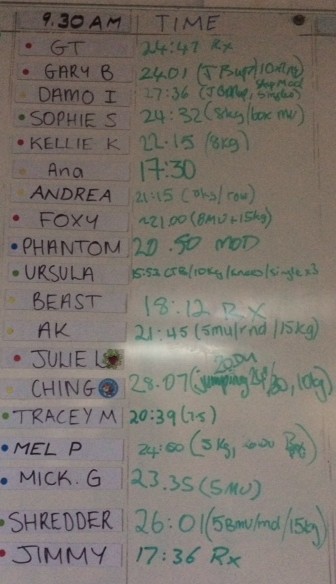 9.30 AM TIME
GT 24:47 Rx
GARY B 24:01 (JBup/
DAMO I 27:36 (
SOPHIE S 24:32 (8kg/box mu)
KELLIE K 22:15 (8kg)
Ana 17:30
ANDREA 21:15 (/row)
FOXY ~21:00 (8MU+15kg)
PHANTOM 20.50 MOD
URSULA 15:52 (/10kg/knees/single x3
BEAST 18:12 RX
AK 21:45 (5mu/rnd/15kg)
JULIE L
CHING 28.07 (jumping /30, 10kg)
TRACEY M 20:39 (7.5)
MEL P
MICK. G 23.35 (5MU)
SHREDDER 26:01 (5Bmu/rnd/15kg)
JIMMY 17:36 Rx